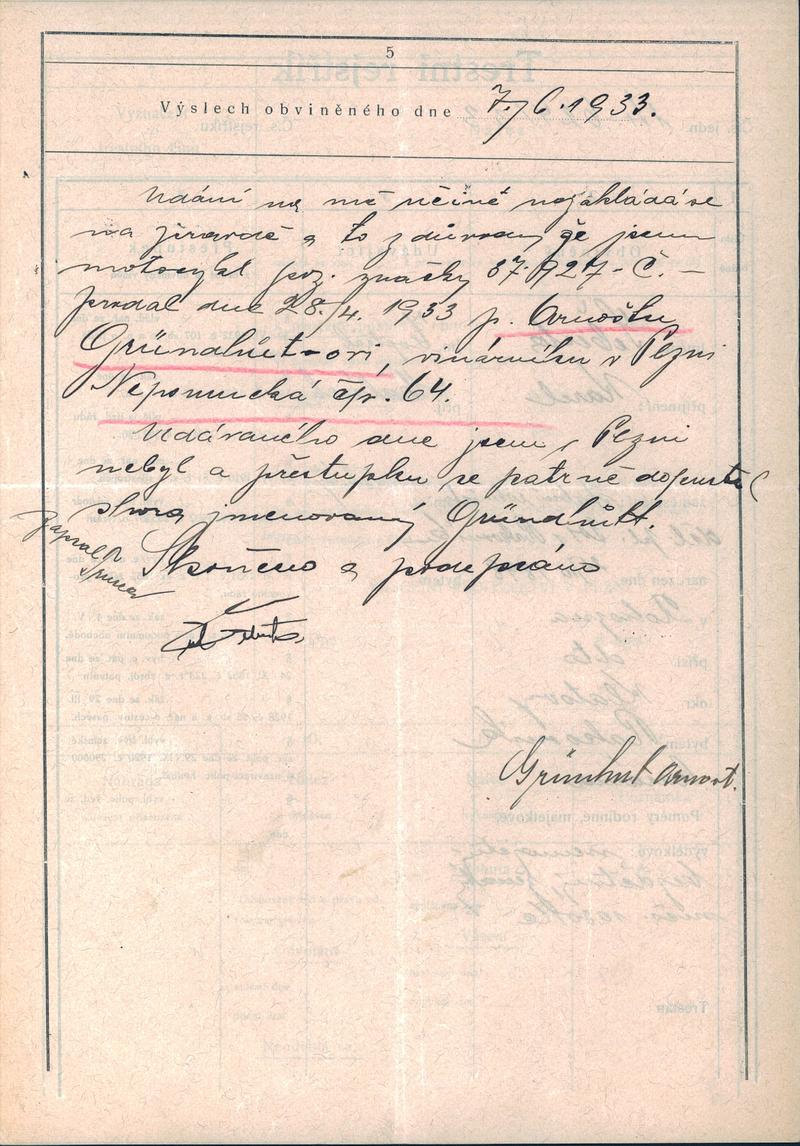 5
Výslech obviněného dne 7./6.1933.
Udání na mě učiněné nezakládá se
na pravdě a to z důvodu že jsem
motocykl poz. značky 37.927-Č. –
prodal dne 28./4. 1933 p. Arnoštu
Gründhüt-ovi, vinárníku v Plzni
Nepomucká čp. 64.
Udávaného dne jsem v Plzni
nebyl a přestupku se patrně dopustil
shora jmenovaný Gründhütt.
Skončeno a podepsáno
Zapsal
Grünhut Arnošt.